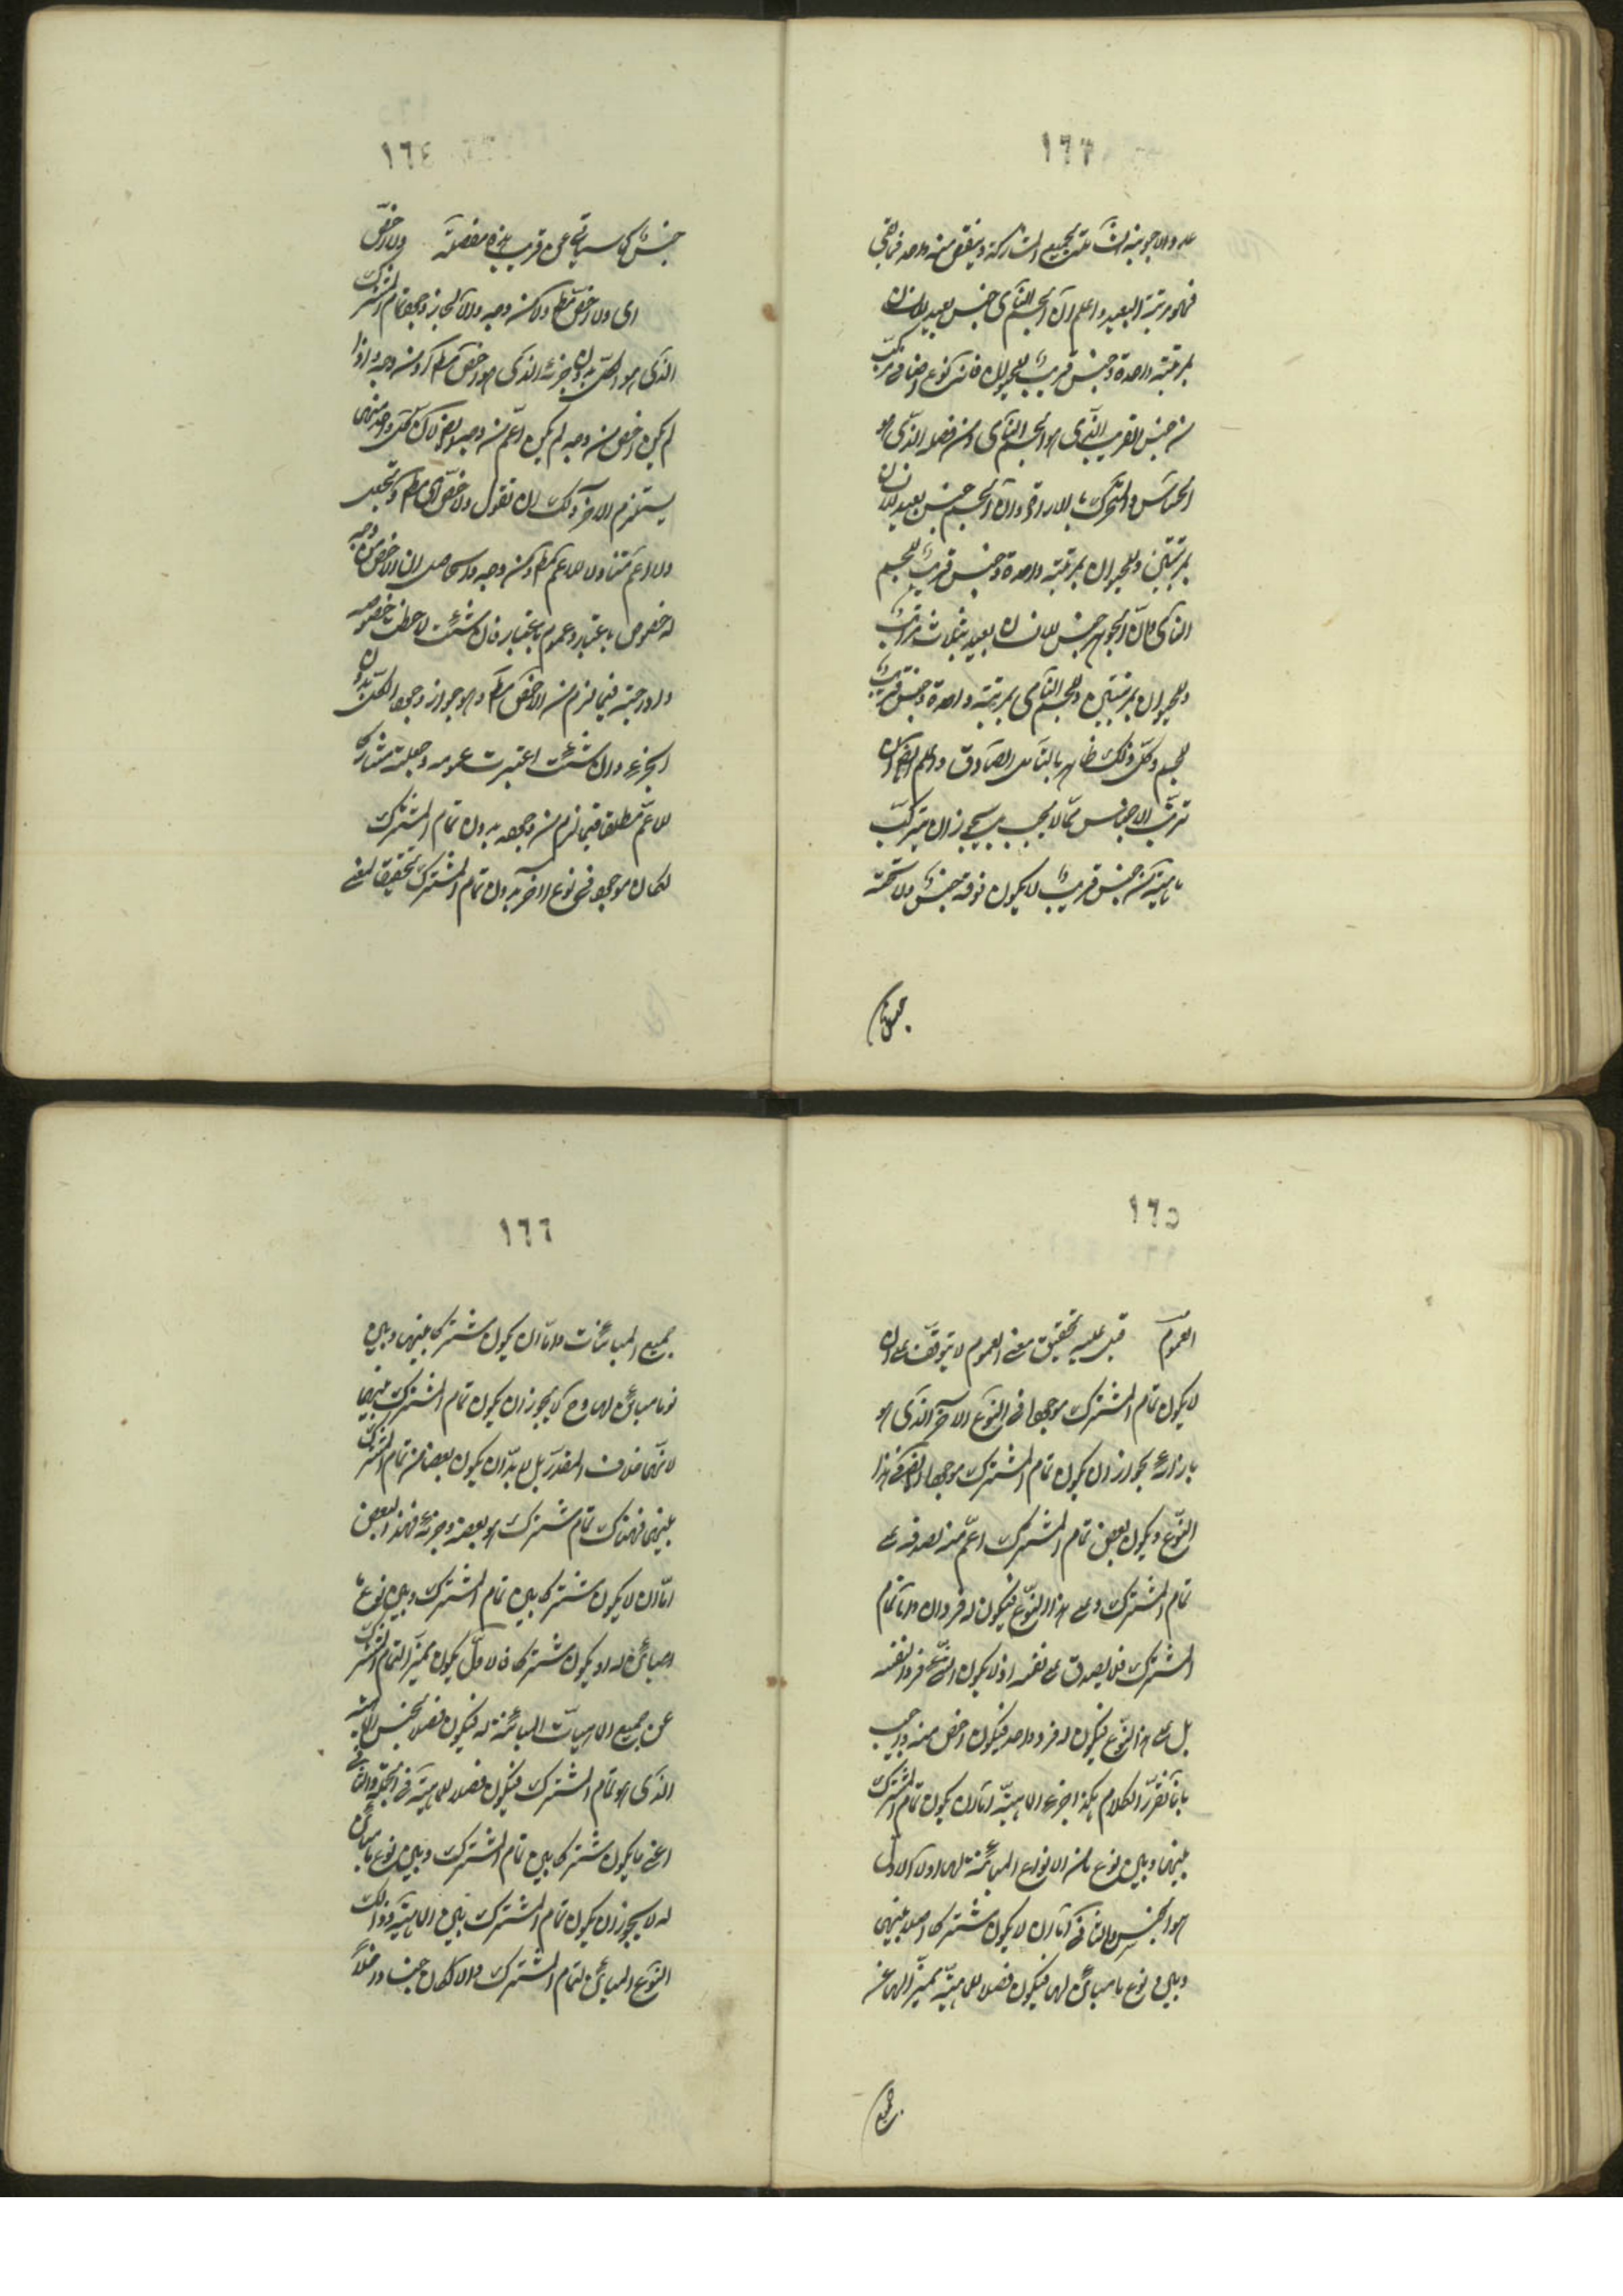 ١٦٣
عدد الاجوبة الشاملة لجميع المشاركة وينقص منه واحد فما بقي
فهو مرتبة البعيد واعلم ان الجسم النامي جنس بعيد للانسان
بمرتبة واحدة وجنس قريب للحيوان فانه نوع اضافي مركب
من جنس القريب الذي هو الجسم النامي ومن فصله الذي هو
الحساس والمتحرك بالارادة وان الجسم جنس بعيد للانسان
بمرتبتين وللحيوان بمرتبة واحدة وجنس قريب للجسم
النامي وان الجوهر جنس للانسان بعيد بثلاث مراتب
وللحيوان بمرتبتين وللجسم النامي بمرتبة واحدة وجنس قريب
للجسم وكل ذلك ظاهر بالتأمل الصادق واعلم ايضا ان
ترتب الاجناس مما لا يجب بل يجوز ان يتركب
ماهية من جنس قريب لا يكون فوقه جنس ولا تحته
جنس
١٦٤
جنس كما سيأتي عن قريب هذه مفصلة ولا اخص
اى ولا اخص مط ولا من وجه والا لجاز وجود تمام المشترك
الذي هو الكل بدون جزئه الذي هو اخص مط او من وجه واذا
لم يكن اخص من وجه لم يكن اعم من وجه ايضا لان كل واحد منهما
يستلزم الاخر ولك ان تقول ولا اخص اى مط وتجعل
ولا اعم متناولا للاعم مط ومن وجه والحاصل ان الاخص من وجه
له خصوص باعتبار وعموم باعتبار فان شئت لاحظت خصوصه
وادرجته فيما لزم من الاخص مط وهو جواز وجود الكل بدون
الجزء وان شئت اعتبرت عمومه وجعلته مشاركا
للاعم مطلقا فيما لزم من وجوده بدون تمام المشترك
لكان موجودا في نوع اخر بدون تمام المشترك تحقيقا لمعنى
١٦٥
العموم قيل عليه تحقيق معنى العموم لا يتوقف على ان
لا يكون تمام المشترك موجودا في النوع الاخر الذي هو
بازائه بجواز ان يكون تمام المشترك موجودا ايضا في هذا
النوع ويكون بعض تمام المشترك اعم منه لصدقه على
تمام المشترك وعلى هذا النوع فيكون له فردان واما تمام
المشترك فلا يصدق على نفسه اذ لا يكون الشيء فردا لنفسه
بل على هذا النوع فيكون له فرد واحد فيكون اخص منه واجيب
بانا نقرر الكلام هكذا جزء الماهية اما ان يكون تمام المشترك
بينها وبين نوع ما من الانواع المباينة لها اولا الاول
هو الجنس والثاني اما ان لا يكون مشتركا اصلا بينها
وبين نوع ما مباين لها فيكون فصلا للماهية مميزا لها عن
جميع
١٦٦
جميع المباينات واما ان يكون مشتركا بينها وبين
نوع ما مباين لها وح لا يجوز ان يكون تمام المشترك بينهما
لانه خلاف المقدر بل لا بد ان يكون بعضا من تمام المشترك
بينهما فهناك تمام مشترك هو بعضه وجزئه فهذا البعض
اما ان لا يكون مشتركا بين تمام المشترك وبين نوع ما
مباين له او يكون مشتركا فالاول يكون مميزا لتمام المشترك
عن جميع الماهيات المباينة له فيكون فصلا لجنس الماهية
الذي هو تمام المشترك فيكون فصلا للماهية في الجملة والثاني
اعني ما يكون مشتركا بين تمام المشترك وبين نوع ما مباين
له لا يجوز ان يكون تمام المشترك بين الماهية وذلك
النوع المباين لتمام المشترك والا لكان جنسا داخلا